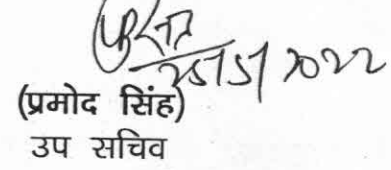 25/5/2022
(प्रमोद सिंह)
उप सचिव